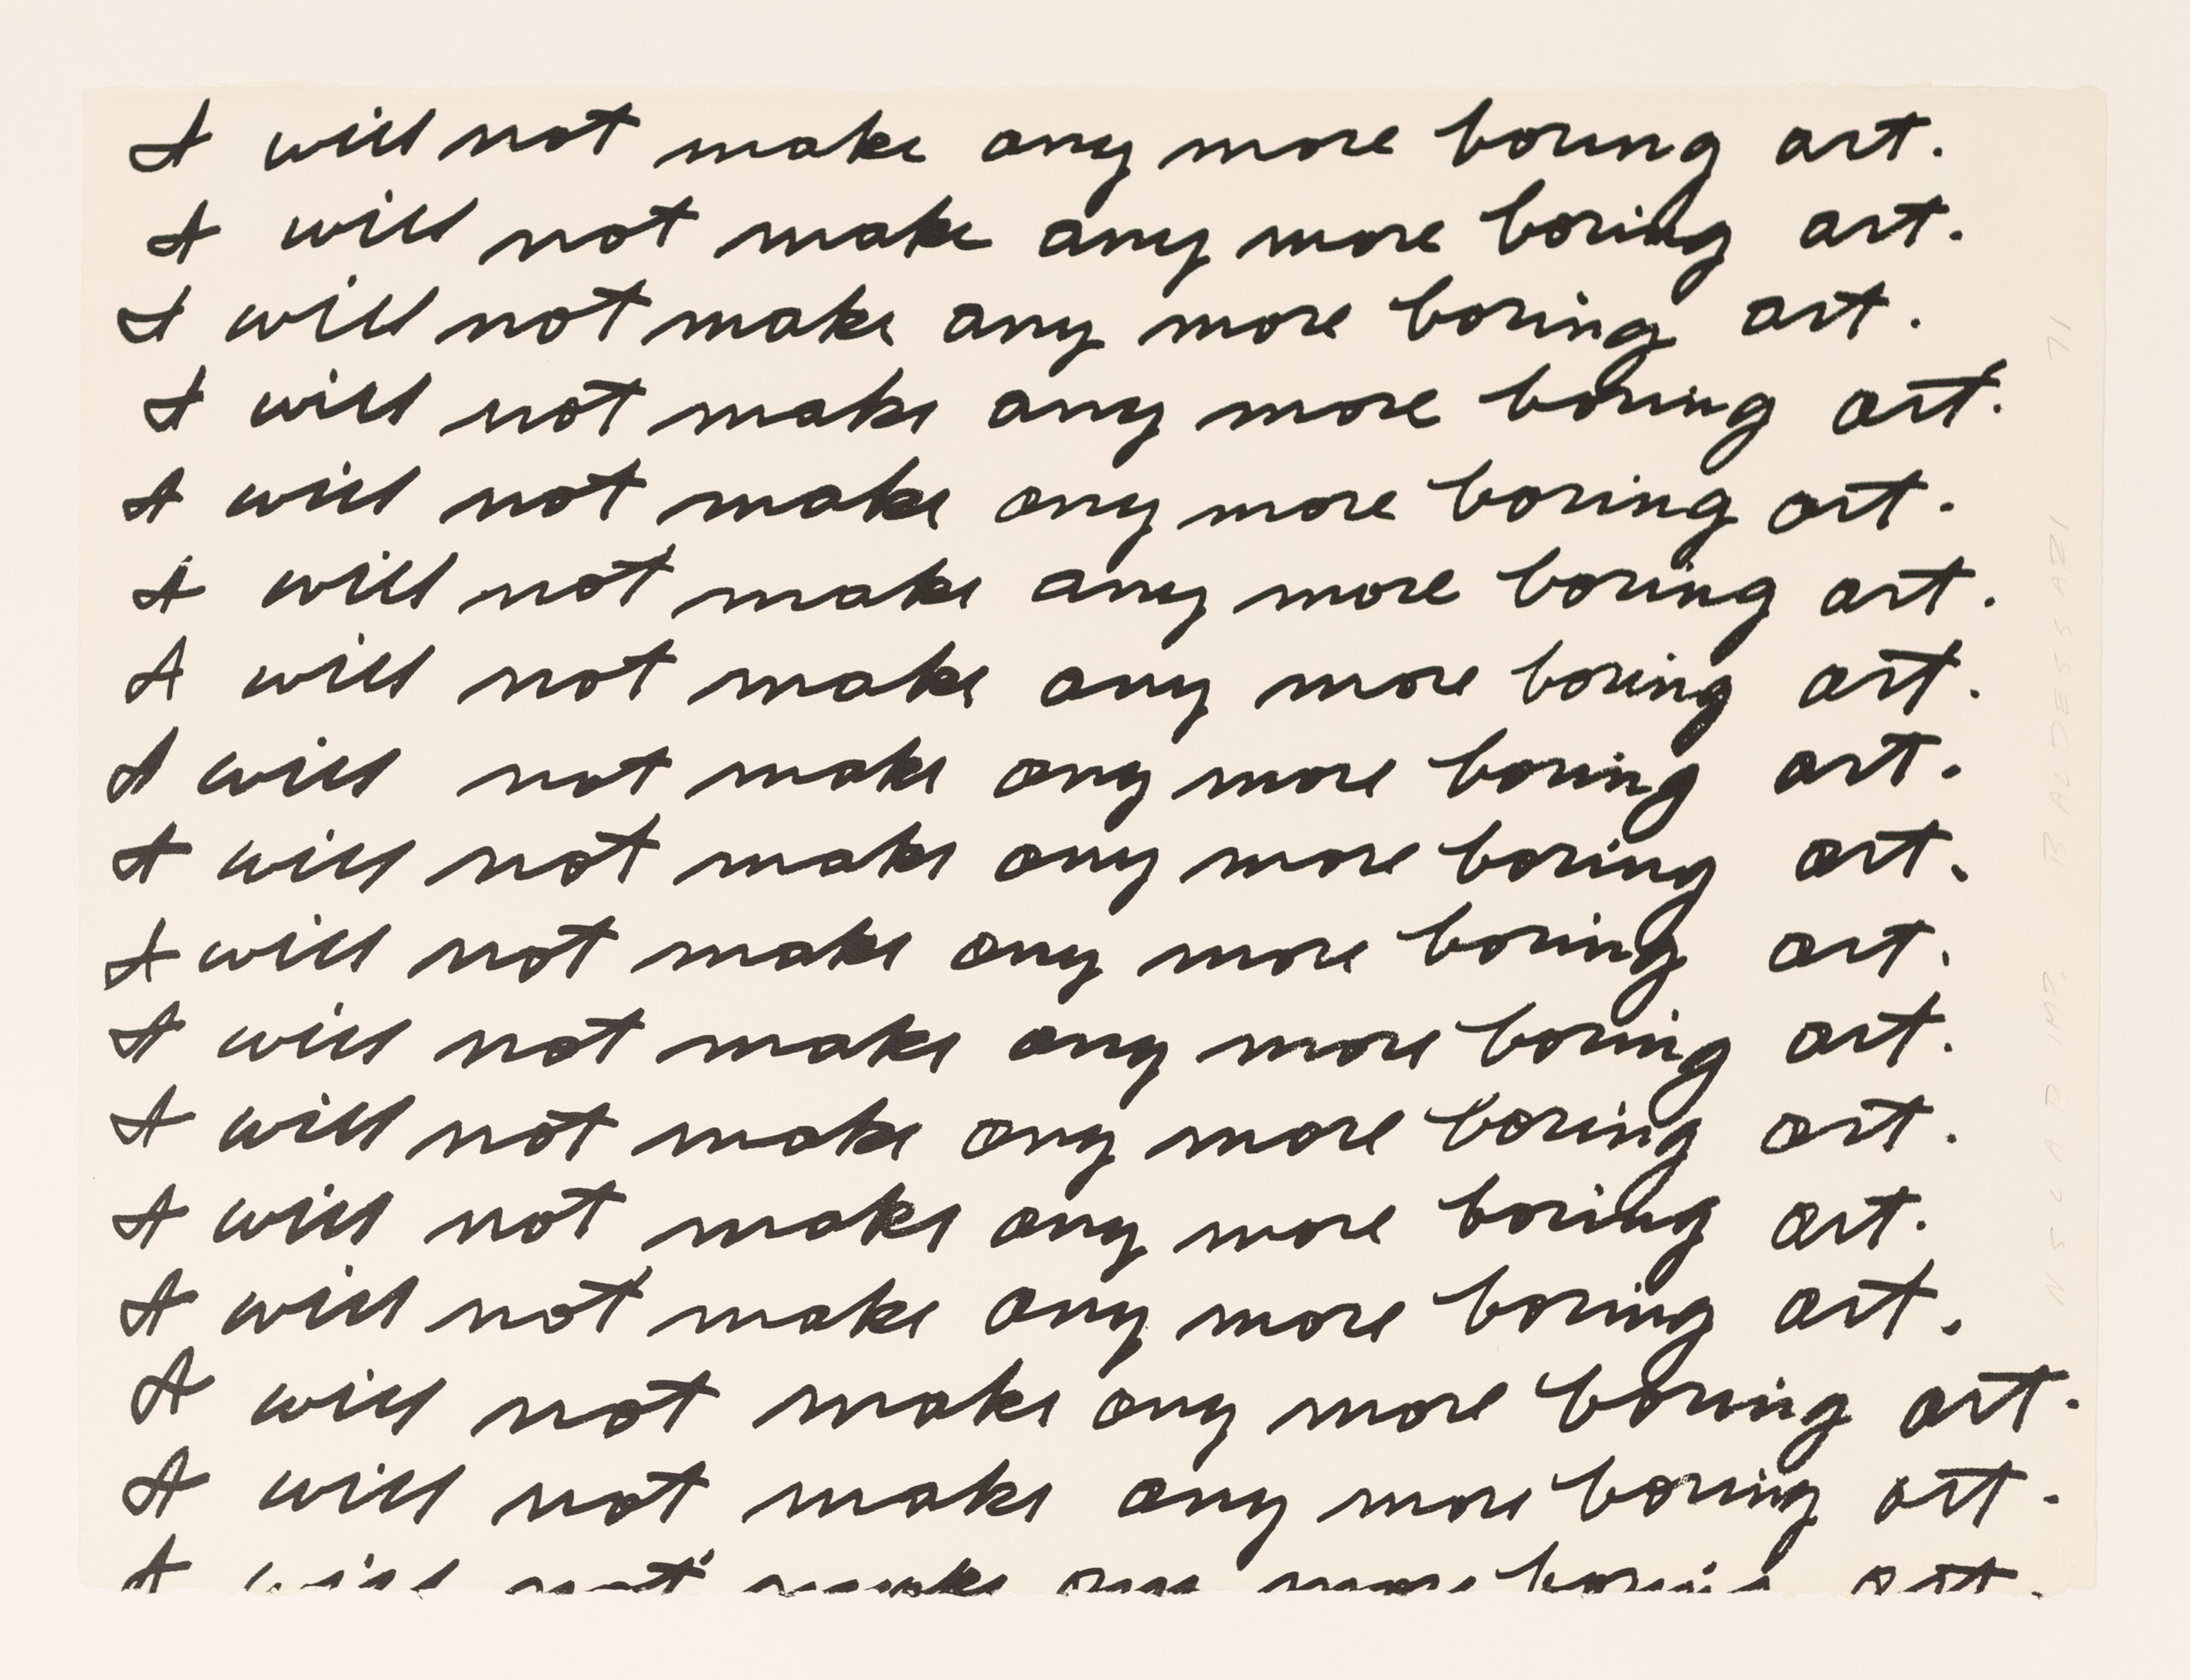 I will not make any more boring art.
I will not make any more boring art.
I will not make any more boring art.
I will not make any more boring art.
I will not make any more boring art.
I will not make any more boring art.
I will not make any more boring art.
I will not make any more boring art.
I will not make any more boring art.
I will not make any more boring art.
I will not make any more boring art.
I will not make any more boring art.
I will not make any more boring art.
I will not make any more boring art.
I will not make any more boring art.
I will not make any more boring art.
I will not make any more boring art.
NSCAD IMP. BALDESSARI 71